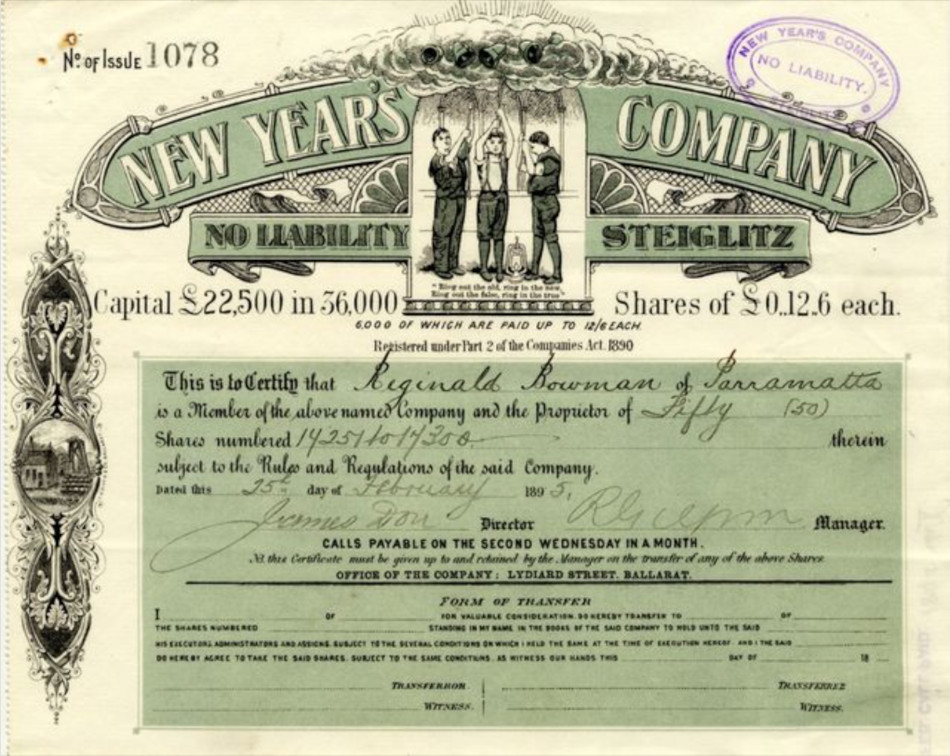 No. of Issue 1078
NEW YEAR'S COMPANY
NO LIABILITY.
NEW YEAR'S COMPANY
NO LIABILITY STEIGLITZ
"Ring out the old, ring in the new,
Ring out the false, ring in the true"
Capital £22,500 in 36,000 Shares of £0..12..6 each.
6,000 OF WHICH ARE PAID UP TO 12/6 EACH.
Registered under Part 2 of the Companies Act. 1890
This is to Certify that Reginald Bowman of Parramatta
is a Member of the above named Company and the Proprietor of Fifty (50)
Shares numbered 14251 to 14300 therein
subject to the Rules and Regulations of the said Company.
Dated this 25th day of February 1895.
James Don Director Manager.
CALLS PAYABLE ON THE SECOND WEDNESDAY IN A MONTH.
this Certificate must be given up to and retained by the Manager on the transfer of any of the above Shares
OFFICE OF THE COMPANY: LYDIARD STREET. BALLARAT.
FORM OF TRANSFER
I OF FOR VALUABLE CONSIDERATION. DO HEREBY TRANSFER TO OF
THE SHARES NUMBERED STANDING IN MY NAME IN THE BOOKS OF THE SAID COMPANY TO HOLD UNTO THE SAID
HIS EXECUTORS ADMINISTRATORS AND ASSIGNS. SUBJECT TO THE SEVERAL CONDITIONS ON WHICH I HELD THE SAME AT THE TIME OF EXECUTION HEREOF. AND I THE SAID
DO HEREBY AGREE TO TAKE THE SAID SHARES. SUBJECT TO THE SAME CONDITIONS. AS WITNESS OUR HANDS THIS DAY OF 18
TRANSFERROR. TRANSFERREE
WITNESS. WITNESS.